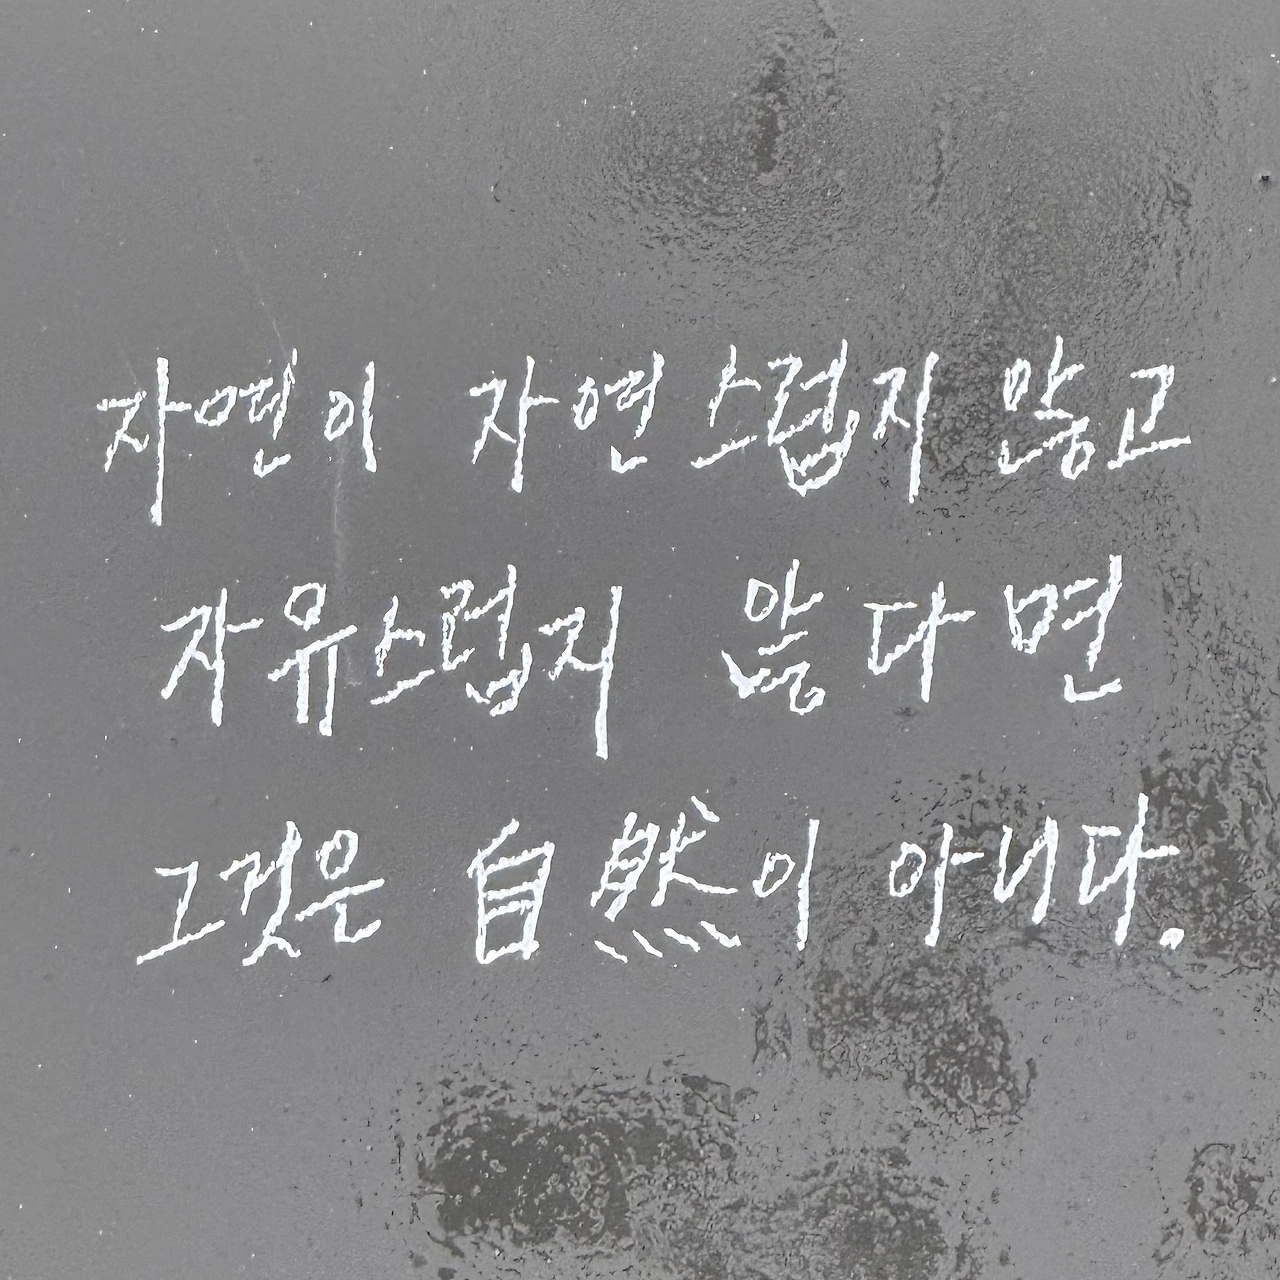 자연이 자연스럽지 않고
자유스럽지 않다면
그것은 自然이 아니다.